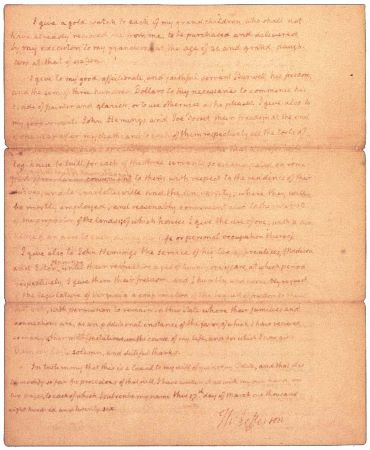 I give a gold watch to each of my grand children who shall not
have already received one from me, to be purchased and delivered
by my executor to my grandsons at the age of 21 and grand daugh-
ters at that of sixteen.
I give to my good, affectionate, and faithful servant Burwell his freedom,
and the sum of three hundred Dollars to buy necessaries to commence his
trade of painter and glazier, or to use otherwise as he pleases. I give also to
John Hemings and Joe Fosset their freedom at the end
of one year after my death: and to each of them respectively all the tools of
log house to be built for each of the three servants
to them with respect to the residence of their
wives, Charlottesville and the University, where they will
be mostly employed, and reasonably convenient also to the
of the proprietor of the lands; of which houses I give the use of one, with a
life or personal occupation thereof.
I give also to John Hemings the service of his two apprentices, Madison
and Eston Hemings, until their respective ages of twenty one years, at which period
respectively, I give them their freedom. and I humbly and earnestly request
of the legislature of Virginia a confirmation of the bequest of freedom to these
with permission to remain in this state where their families and
connections are, as an additional instance of the favor, of which I have received
so many other manifestations, in the course of my life, and for which I now give
them my last, solemn, and dutiful thanks.
In testimony that this is a Codicil to my will of yesterday's date, and that it is
to modify so far the provisions of that will, I have written it all with my own hand, in
two pages, to each of which I subscribe my name this 17th day of March one thousand
eight hundred and twenty six.
Th: Jefferson